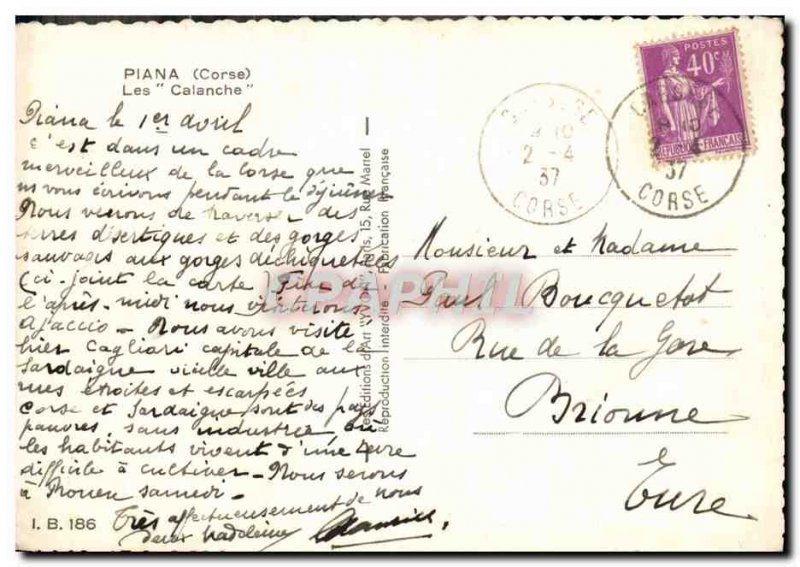 PIANA (Corse)
Les " Calanche "
Piana le 1er avril
C'est dans un cadre
merveilleux de la Corse que
ns vous écrivons pendant le déjeuner
Nous venons de traverser des
terres désertiques et des gorges
sauvages aux gorges déchiquetées
(ci-joint la carte) Fin de
l'après-midi nous visiterons
Ajaccio - Nous avons visité
hier Cagliari capitale de la
Sardaigne vieille ville aux
rues étroites et escarpées
Corse et Sardaigne sont des pays
pauvres, sans industrie où
les habitants vivent d'une terre
difficile à cultiver - Nous serons
à Rouen samedi -
Très affectueusement de nous
deux Madeleine
I. B. 186
Les Editions d'Art "YVON", Paris, 15, Rue Martel
Reproduction interdite - Fabrication Française
POSTES
40c
REPUBLIQUE FRANÇAISE
2 - 4
37
CORSE
2 - 4
37
CORSE
Monsieur et Madame
Paul Boucquetot
Rue de la Gare
Brionne
Eure
EPAPHIL